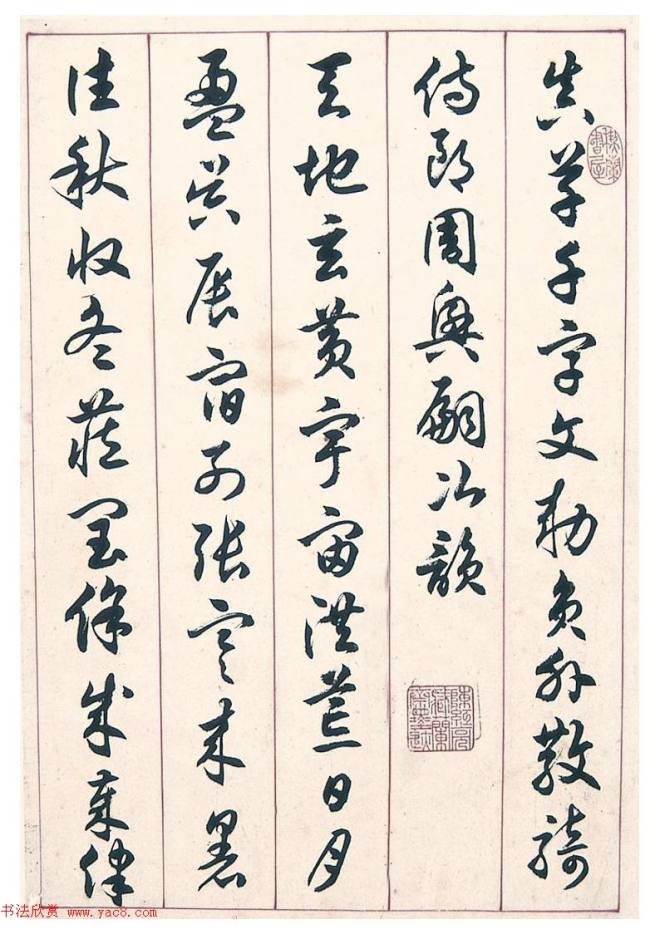 真草千字文勅員外散騎
侍郎周興嗣次韻
天地玄黃宇宙洪荒日月
盈昃辰宿列張寒來暑
往秋收冬藏閏餘成歲律
书法欣赏 www.yac8.com